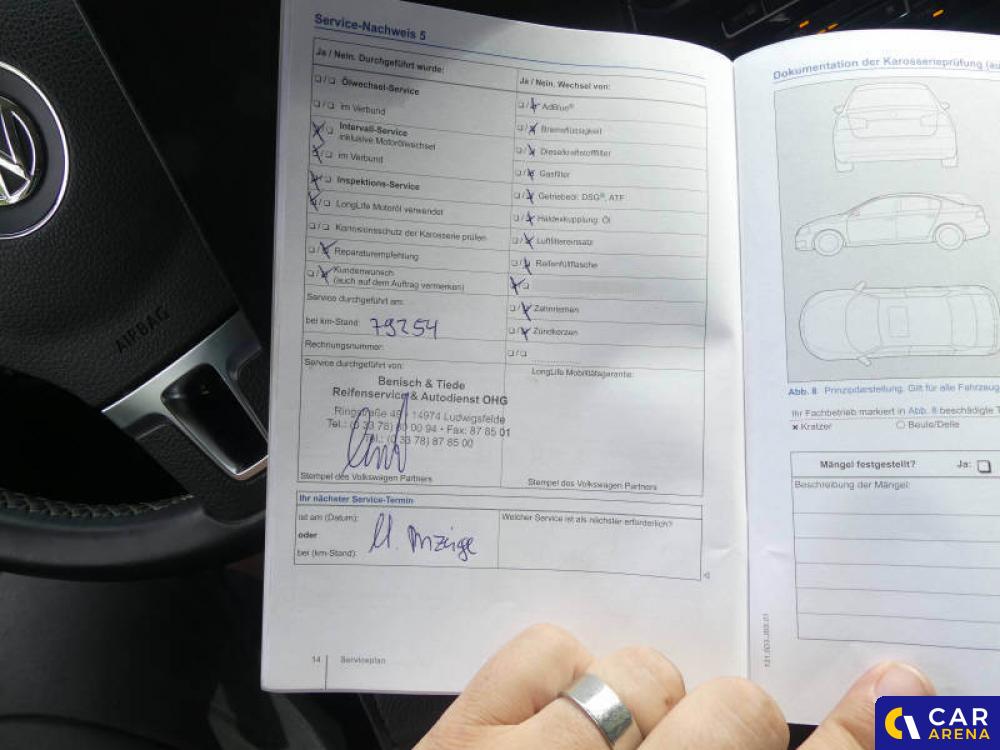 Service-Nachweis 5
Ja / Nein. Durchgeführt wurde:
☐/☐ Ölwechsel-Service
☐/☐ im Verbund
☒/☐ Intervall-Service
inklusive Motorölwechsel
☒/☐ im Verbund
☒/☐ Inspektions-Service
☒/☐ LongLife Motoröl verwendet
☐/☐ Korrosionsschutz der Karosserie prüfen
☐/☒ Reparaturempfehlung
☐/☒ Kundenwunsch
(auch auf dem Auftrag vermerken)
Service durchgeführt am:
bei km-Stand: 79254
Rechnungsnummer:
Service durchgeführt von:
Benisch & Tiede
Reifenservice & Autodienst OHG
Ringstraße 14974 Ludwigsfelde
Tel.: (0 33 78) 00 94 • Fax: 87 85 01
Tel.: (0 33 78) 87 85 00
Stempel des Volkswagen Partners
Ja / Nein. Wechsel von:
☐/☒ AdBlue®
☐/☒ Bremsflüssigkeit
☐/☒ Dieselkraftstofffilter
☐/☒ Gasfilter
☐/☒ Getriebeöl: DSG®, ATF
☐/☒ Haldexkupplung: Öl
☐/☒ Luftfiltereinsatz
☐/☒ Reifenfüllflasche
☒/☐
☐/☒ Zahnriemen
☐/☒ Zündkerzen
☐/☐
LongLife Mobilitätsgarantie:
Stempel des Volkswagen Partners
Ihr nächster Service-Termin
ist am (Datum):
oder
bei (km-Stand):
Anzeige
Welcher Service ist als nächster erforderlich?
14 Serviceplan
Dokumentation der Karosserieprüfung (au
Abb. 8 Prinzipdarstellung. Gilt für alle Fahrzeug
Ihr Fachbetrieb markiert in Abb. 8 beschädigte T
× Kratzer ○ Beule/Delle
Mängel festgestellt? Ja: ☐
Beschreibung der Mängel:
AIRBAG
CAR
ARENA